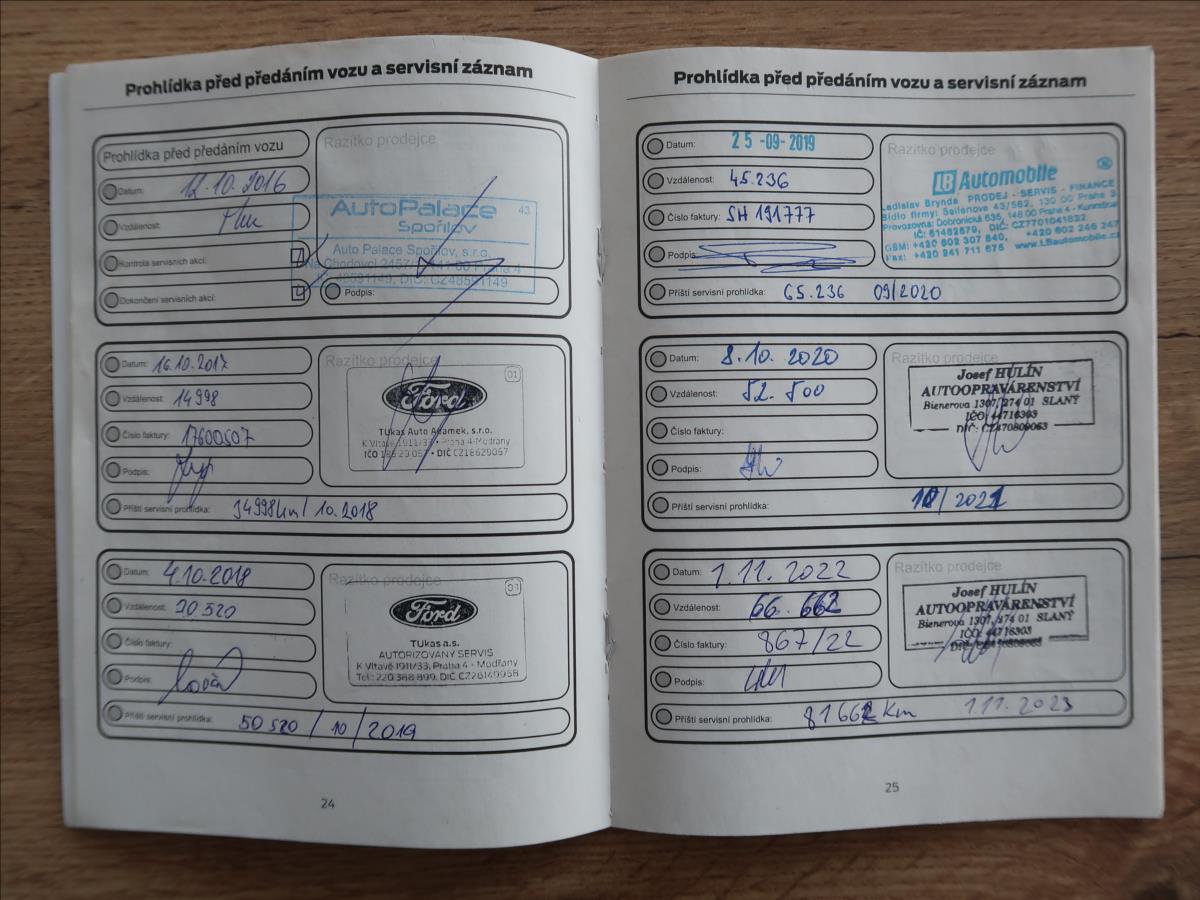 Prohlídka před předáním vozu a servisní záznam
Prohlídka před předáním vozu
Datum: 12.10.2016
Vzdálenost:
Kontrola servisních akcí:
Dokončení servisních akcí:
Razítko prodejce
AutoPalace 43
Spořilov
Auto Palace Spořilov, s.r.o.
Na Chodovci 2457/ Praha 4
DIČ: CZ48591149
Podpis:
Datum: 16.10.2017
Vzdálenost: 14998
Číslo faktury: 17600507
Podpis:
Příští servisní prohlídka: 34998km/10.2018
Razítko prodejce
01
Ford
TUkas Auto Adamek, s.r.o.
K Vltavě 1911/33, Praha 4-Modřany
IČO 186 29 067 • DIČ CZ18629067
Datum: 4.10.2018
Vzdálenost: 30520
Číslo faktury:
Podpis:
Příští servisní prohlídka: 50 520 / 10 / 2019
Razítko prodejce
01
Ford
TUkas a.s.
AUTORIZOVANÝ SERVIS
K Vltavě 1911/33, Praha 4 - Modřany
Tel.: 220 388 899, DIČ CZ26140958
24
Prohlídka před předáním vozu a servisní záznam
Datum: 25-09-2019
Vzdálenost: 45.236
Číslo faktury: SH 191777
Podpis:
Příští servisní prohlídka: 65.236 09/2020
Razítko prodejce
LB Automobile
Ladislav Brynda PRODEJ - SERVIS - FINANCE
Sídlo firmy: Seifertova 43/562, 130 00 Praha 3
Provozovna: Dobronická 635, 148 00 Praha 4 - Kunratice
IČ: 61482579, DIČ: CZ7701041832
GSM: +420 602 307 840, +420 602 246 247
Fax: +420 241 711 675 www.LBautomobile.cz
Datum: 8.10. 2020
Vzdálenost: 52.500
Číslo faktury:
Podpis:
Příští servisní prohlídka: 10/2021
Razítko prodejce
Josef HULÍN
AUTOOPRAVÁRENSTVÍ
Bienerova 1307, 274 01 SLANÝ
IČO: 44716303
DIČ: CZ470809063
Datum: 1.11. 2022
Vzdálenost: 66.662
Číslo faktury: 867/22
Podpis:
Příští servisní prohlídka: 81662 Km 1.11. 2023
Razítko prodejce
Josef HULÍN
AUTOOPRAVÁRENSTVÍ
Bienerova 1307, 274 01 SLANÝ
IČO: 44716303
25